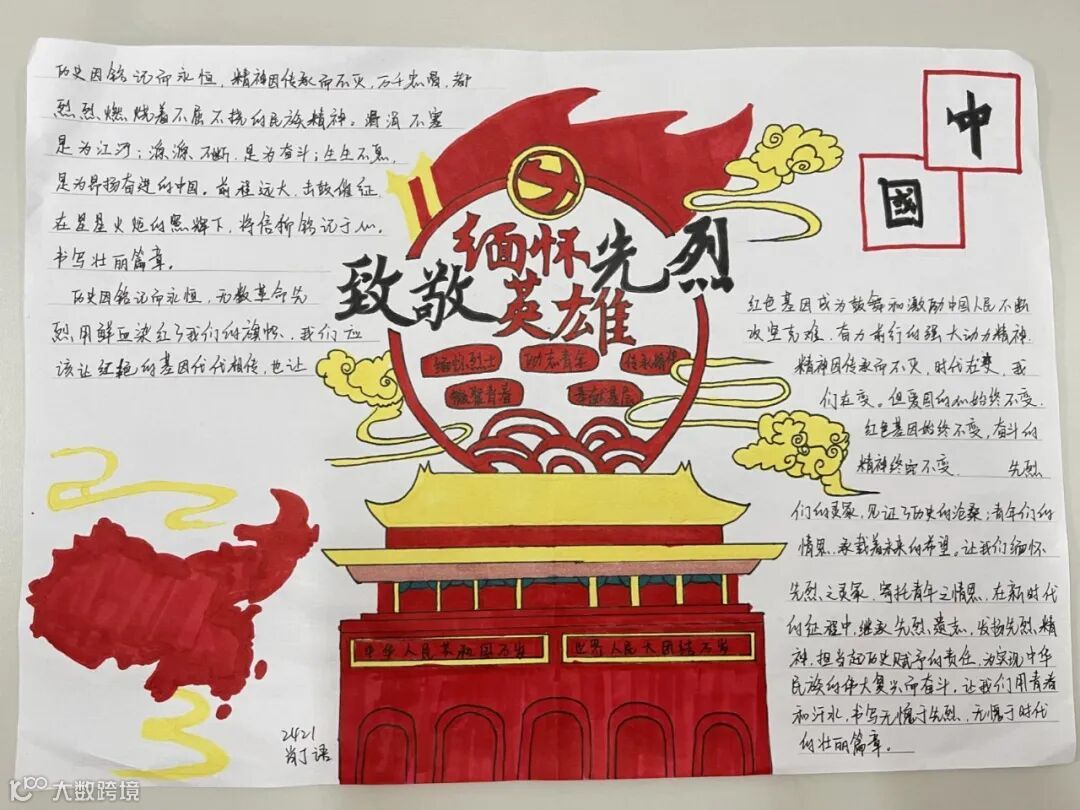 历史因铭记而永恒，精神因传承而不灭，万千忠魂，都
烈烈燃烧着不屈不挠的民族精神。涓涓不塞
是为江河；源源不断，是为奋斗；生生不息，
是为昂扬奋进的中国。前程远大，击鼓催征
在星星火炬的照辉下，将信仰铭记于心。
书写壮丽篇章。
历史因铭记而永恒，无数革命先
烈用鲜血染红了我们的旗帜，我们应
该让红艳的基因代代相传，也让
中
國
缅怀先烈
致敬英雄
缅怀烈士
励志青年
传承
凝聚青春
奉献基层
红色基因成为鼓舞和激励中国人民不断
攻坚克难，奋力前行的强大动力精神.
精神因传承而不灭，时代在变，我
们在变。但爱国的心始终不变.
红色基因始终不变，奋斗的
精神终究不变. 先烈
们的灵冢，见证了历史的沧桑；青年们的
情思，承载着未来的希望。让我们缅怀
先烈之灵冢，寄托青年之情思，在新时代
的征程中，继承先烈遗志，发扬先烈精
神，担当起历史赋予的责任，为实现中华
民族的伟大复兴而奋斗，让我们用青春
和汗水，书写无愧于先烈、无愧于时代
的壮丽篇章。
中华人民共和国万岁
世界人民大团结万岁
语
大数跨境